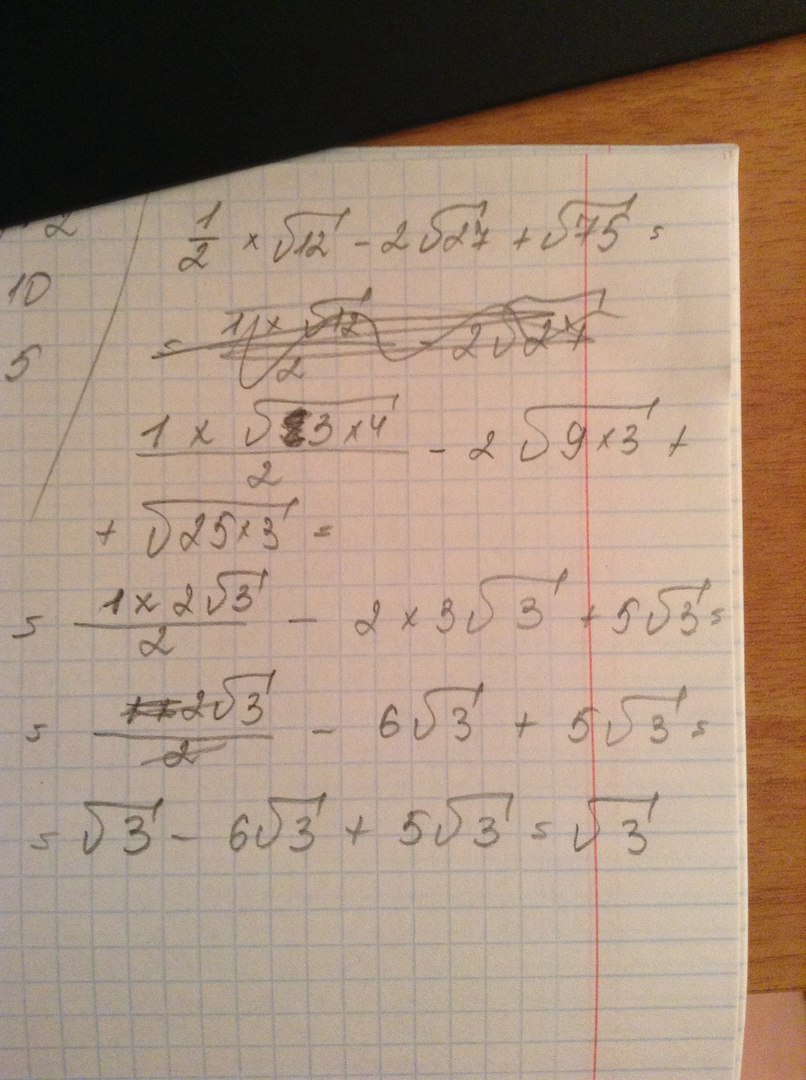 2
10
5
1/2 × √12 - 2√27 + √75 =
= 1 × √12 / 2 - 2√27
1 × √3×4 / 2 - 2√9×3 +
+ √25×3 =
= 1 × 2√3 / 2 - 2 × 3√3 + 5√3 =
= 2√3 / 2 - 6√3 + 5√3 =
= √3 - 6√3 + 5√3 = √3